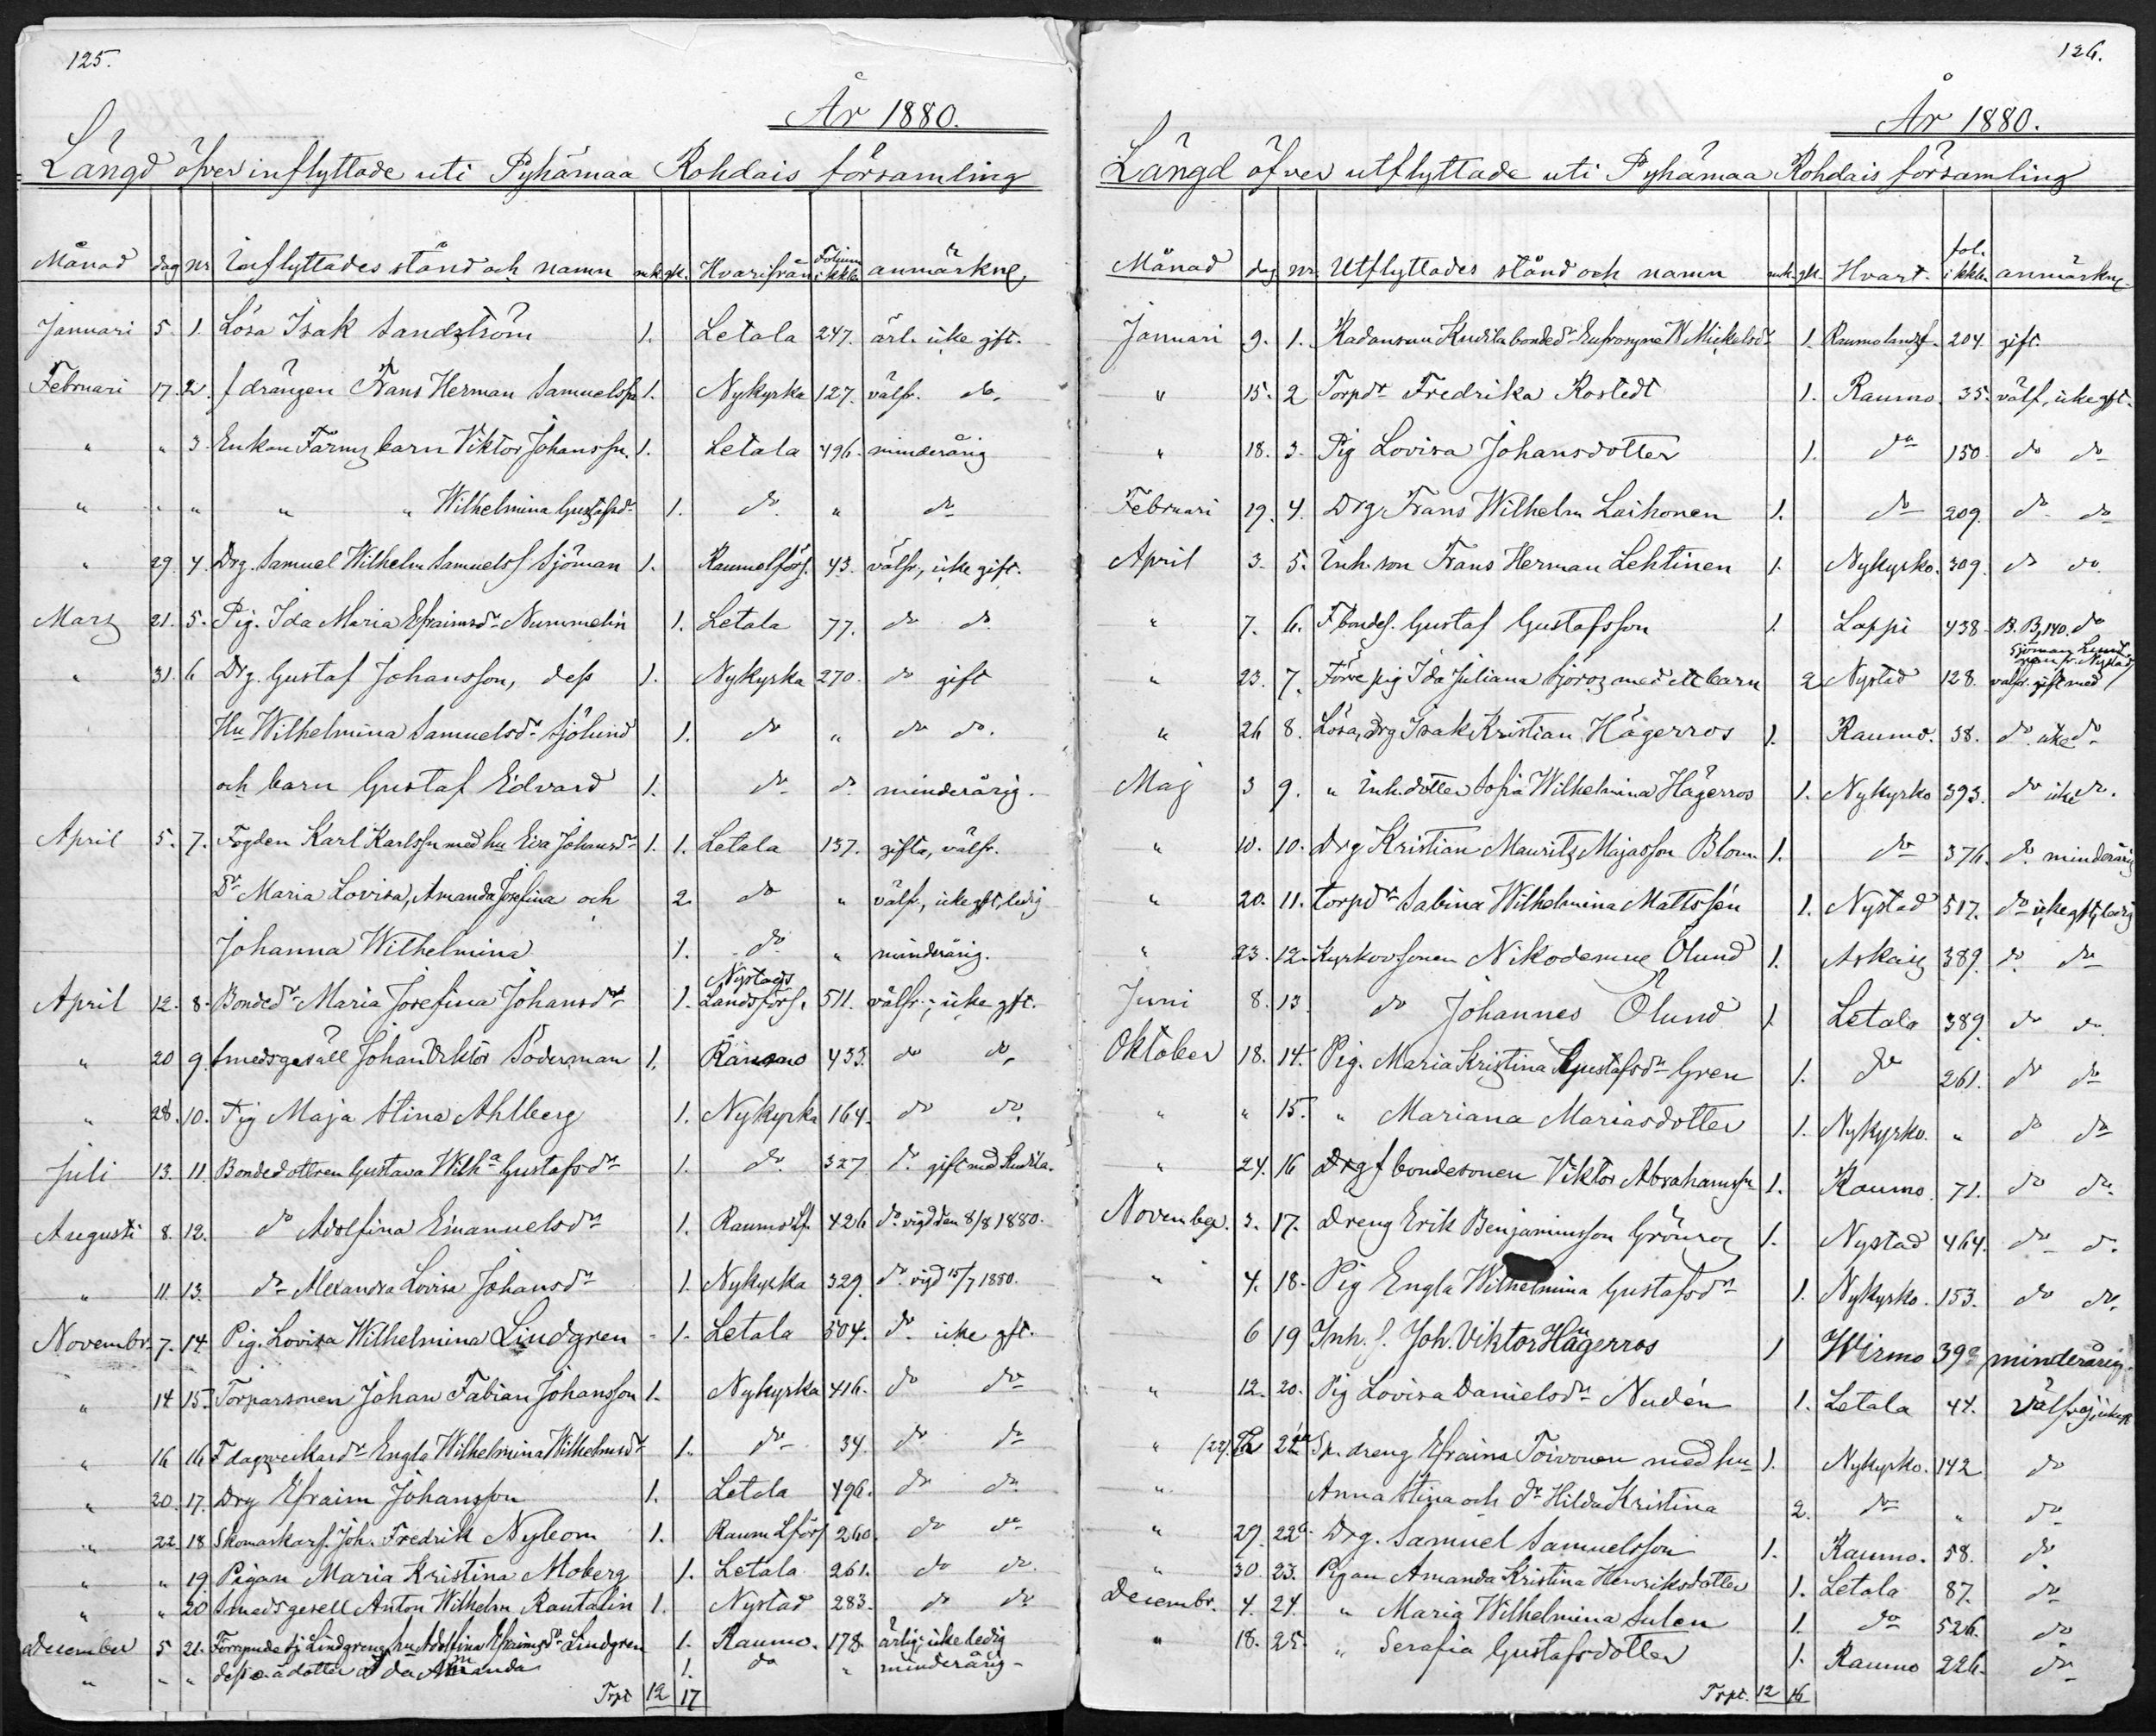 125.
År 1880.
Längd öfver inflyttade uti Pyhämaa Rohdais församling
Månad dag nr Inflyttades stånd och namn mk. qk. Hvarifrån Folium i kkb. anmärkng
Januari 5 1. Lösa Isak Sandström 1. Letala 247. ärl. icke gft.
Februari 17. 2. f drängen Frans Herman Samuelssn 1. Nykyrka 127. välfr. do.
" " 3. Enkan Färms barn Viktor Johanssn. 1. Letala 496. minderårig
" " " " " Wilhelmina Gustafsdr 1. do " do
" 29. 4. Drg. Samuel Wilhelm Samuelss Sjöman 1. Raumolförs. 43. välfr., icke gift.
Mars 21. 5. Pig. Ida Maria Efraimsdr Nummelin 1. Letala 77. do do
" 31. 6 Drg. Gustaf Johansson, dess 1. Nykyrka 270. do gift
Hu Wilhelmina Samuelsdr Sjölund 1. do " do do.
och barn Gustaf Edvard 1. do do minderårig.
April 5. 7. Fogden Karl Karlssn med hu Eva Johansdr 1. 1. Letala 137. gifta, välfr.
Dr Maria Lovisa, Amanda Josefina och 2 do " välfr., icke gft, ledig
Johanna Wilhelmina 1. do " minderårig.
April 12. 8. Bondedr Maria Josefina Johansdr 1. Nystads Landsförs. 511. välfr., icke gft.
" 20 9. Smedsgesäll Johan Viktor Söderman 1. Raumo 433. do do
" 28. 10. Pig Maja Stina Ahlberg 1. Nykyrka 164. do do
Juli 13. 11. Bondedottren Gustava Wilha Gustafsdr 1. do. 327 do. gift med
Augusti 8. 12. do Adolfina Emanuelsdr 1. Raumo Lf. 426 do. vigd den 8/8 1880.
" 11. 13. do Alexandra Lovisa Johansdr 1. Nykyrka 329. do. vigd 15/7 1880.
Novembr. 7. 14 Pig. Lovisa Wilhelmina Lindgren 1. Letala 504. do. icke gft.
" 14 15. Torparsonen Johan Fabian Johansson 1. Nykyrka 416. do do
" 16 16 F dagsverkardr Engla Wilhelmina Wilhelmsdr 1. do 34. do do
" 20. 17. Drg Efraim Johansson 1. Letala 496. do do
" 22. 18 Skomakars. Joh. Fredrik Nybom 1. Raum Lförs 260. do do
" " 19. Pigan Maria Kristina Moberg 1. Letala 261. do do
" " 20 Smedsgesell Anton Wilhelm Rautalin 1. Nystad 283. do do
December 5 21. Lindgrens hu Adolfina Efraimsdr Lindgren 1. Raumo. 178. ärlig: icke ledig
" " " dess ä dotter Ida Amanda 1. do " minderårig-
Trpt 12 17
126.
År 1880.
Längd öfver utflyttade uti Pyhämaa Rohdais församling
Månad dag nr. Utflyttades stånd och namn mk. qk. Hvart. fol. i kkb. anmärkng-
Januari 9. 1. Kudila bondedr Eufrosyne W Mickelsdr 1. Raumo landsf. 204 gift.
" 15. 2 Torpdr Fredrika Rostedt 1. Raumo. 35. välf, icke gft.
" 18. 3. Pig Lovisa Johansdotter 1. do 150. do do
Februari 19. 4. Drg Frans Wilhelm Laihonen 1. do 209. do do
April 3. 5. Inh. son Frans Herman Lehtinen 1. Nykyrko. 309. do do.
" 7. 6. F bondes. Gustaf Gustafsson 1. Lappi 438. B. B, 140. do
" 23. 7. Förre pig Ida Juliana Sjöros med ett barn 2 Nystad 128. välfr. gift med Sjöman Lind fr. Nystad
" 26 8. Lösa, drg Isak Kristian Hägerros 1. Raumo. 38. do icke do
Maj 3 9. " Inh. dotter Sofia Wilhelmina Hägerros 1. Nykyrko 393. do icke do.
" 10. 10. Drg Kristian Maurits Majasson Blom. 1. do 376. do. minderårig
" 20. 11. torpdr Sabina Wilhelmina Mattssén 1. Nystad 517. do icke gft, ledig
" 23. 12. Kyrkov. sonen Nikodemus Ölund 1. Askais 389. do do
Juni 8. 13 do Johannes Ölund 1. Letala 389. do do.
Oktober 18. 14. Pig. Maria Kristina Gustafsdr Gren 1. do 261. do do
" " 15. " Mariana Mariasdotter 1. Nykyrko. " do do
" 24. 16 Drg f bondesonen Viktor Abrahamssn 1. Raumo. 71. do do.
November. 3. 17. Dreng Erik Benjaminsson Grönroos 1. Nystad 464. do do.
" 4. 18. Pig Engla Wilhelmina Gustafsdr 1. Nykyrko. 153. do do.
6 19 Inh. s. Joh. Viktor Hägerros 1 Wirmo 39 minderårig.
" 12. 20. Pig Lovisa Danielsdr Nudén 1. Letala 44. välfr.
" (22). 22 Sp. dreng Efraim Toivonen med hu 1. Nykyrko. 142 do
" Anna Stina och dr Hilda Kristina 2. do " do
" 29. 22a. Drg. Samuel Samuelsson 1. Raumo. 58. do
" 30. 23. Pigan Amanda Kristina Henriksdotter 1. Letala 87. do
Decembr. 4. 24. " Maria Wilhelmina Sulen 1. do 526. do
" 18. 25. " Serafia Gustafsdotter 1. Raumo 226. do
Trpt. 12 16